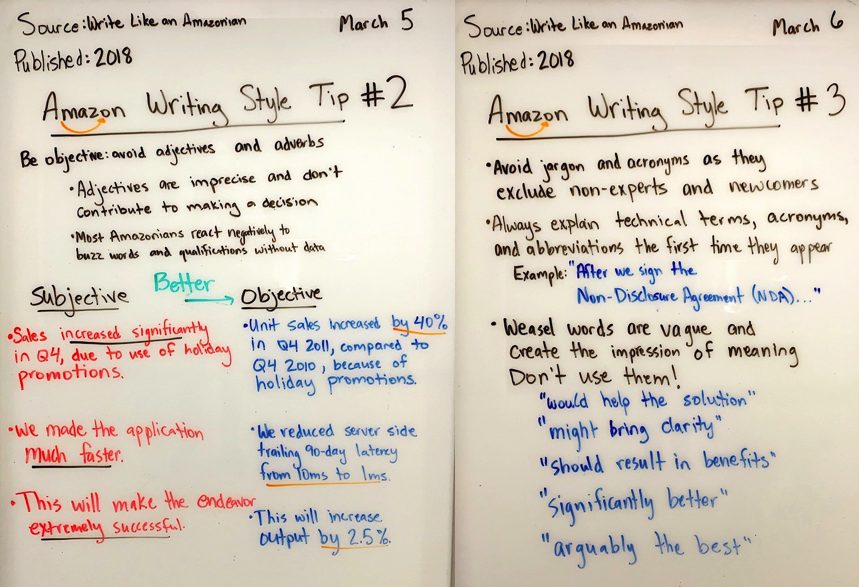 Source: Write Like an Amazonian March 5
Published: 2018
Amazon Writing Style Tip #2
Be objective: avoid adjectives and adverbs
• Adjectives are imprecise and don't
contribute to making a decision
• Most Amazonians react negatively to
buzz words and qualifications without data
Better
Subjective
• Sales increased significantly
in Q4, due to use of holiday
promotions.
• We made the application
much faster.
• This will make the endeavor
extremely successful.
Objective
• Unit sales increased by 40%
in Q4 2011, compared to
Q4 2010, because of
holiday promotions.
• We reduced server side
trailing 90-day latency
from 10ms to 1ms.
• This will increase
output by 2.5%.
Source: Write Like an Amazonian March 6
Published: 2018
Amazon Writing Style Tip #3
• Avoid jargon and acronyms as they
exclude non-experts and newcomers
• Always explain technical terms, acronyms,
and abbreviations the first time they appear
Example: "After we sign the
Non-Disclosure Agreement (NDA)..."
• Weasel words are vague and
create the impression of meaning
Don't use them!
"would help the solution"
"might bring clarity"
"should result in benefits"
"significantly better"
"arguably the best"